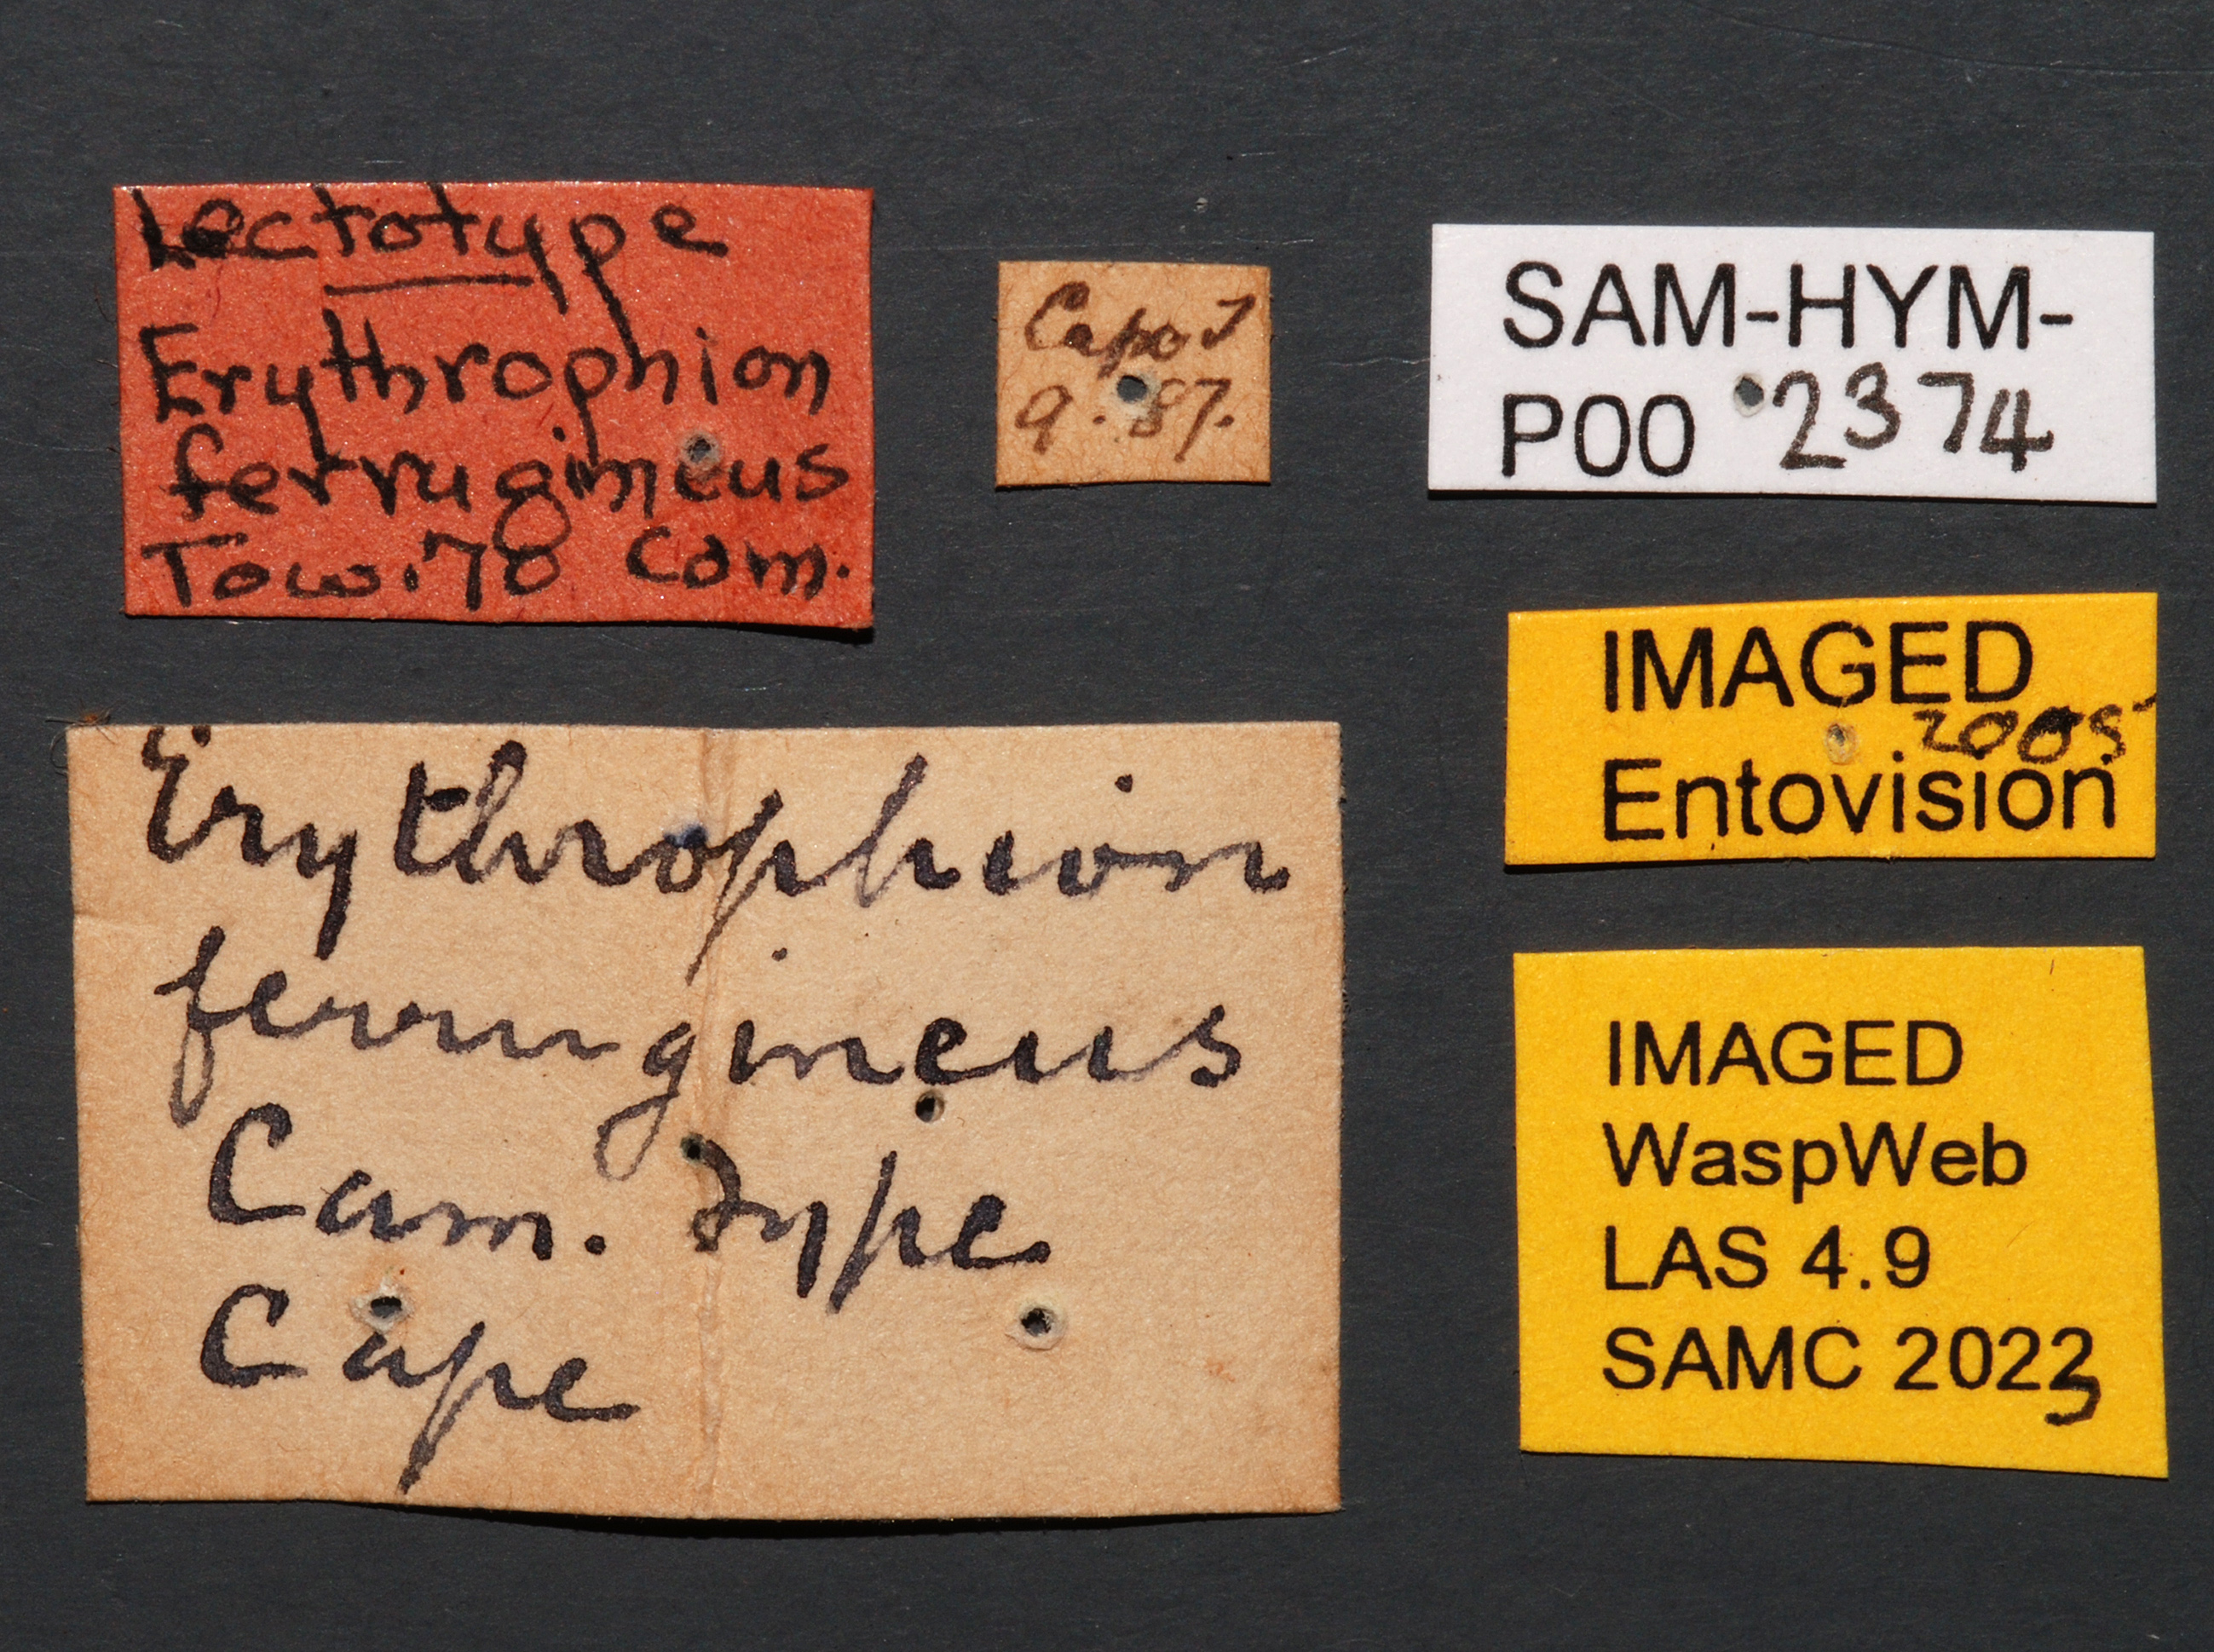 Lectotype
Erythrophion
ferrugineus
Tow.'70 Cam.
Cape T
9.87.
SAM-HYM-
P00 2374
IMAGED
2005
Entovision
Erythrophion
ferrugineus
Cam. Type
Cape
IMAGED
WaspWeb
LAS 4.9
SAMC 2023